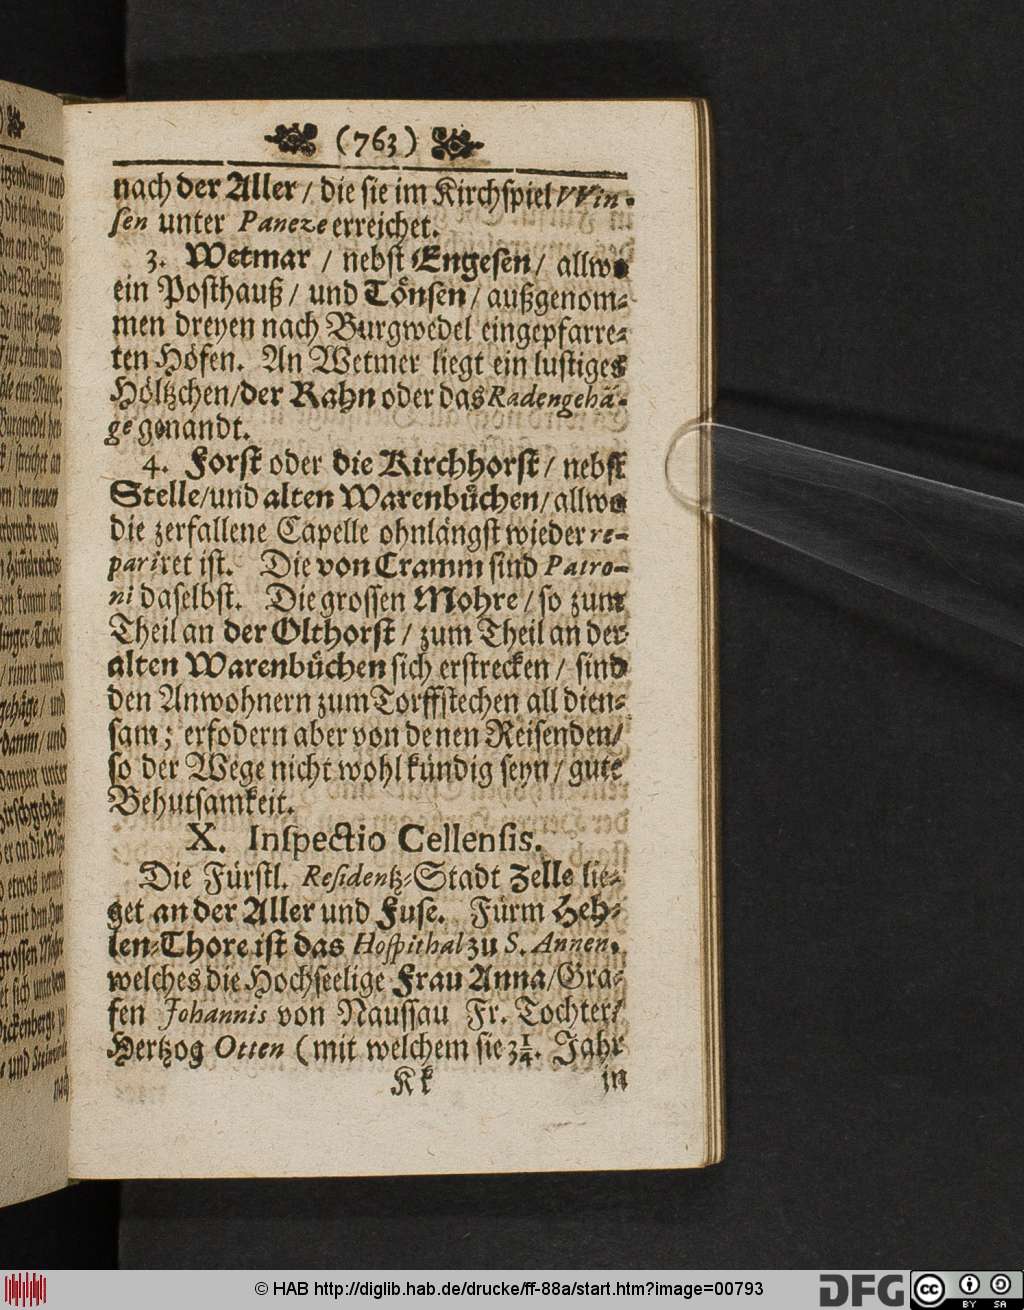 (763)
nach der Aller / die sie im Kirchspiel VVin-
sen unter Paneze erreichet.
3. Wetmar / nebst Engesen / allwo
ein Posthauß / und Tönsen / außgenom-
men dreyen nach Burgwedel eingepfarre-
ten Höfen. An Wetmer liegt ein lustiges
Höltzchen/der Rahn oder das Radengehä-
ge genandt.
4. Forst oder die Kirchhorst / nebst
Stelle/und alten Warenbüchen/allwo
die zerfallene Capelle ohnlängst wieder re-
pariret ist. Die von Cramm sind Patro-
ni daselbst. Die grossen Mohre / so zum
Theil an der Olthorst / zum Theil an der
alten Warenbüchen sich erstrecken / sind
den Anwohnern zum Torffstechen all dien-
sam; erfodern aber von denen Reisenden/
so der Wege nicht wohl kündig seyn / gute
Behutsamkeit.
X. Inspectio Cellensis.
Die Fürstl. Residentz-Stadt Zelle lie-
get an der Aller und Fuse. Fürm Heh-
len-Thore ist das Hospithal zu S. Annen,
welches die Hochseelige Frau Anna/Gra-
fen Johannis von Naussau Fr. Tochter/
Hertzog Otten (mit welchem sie 3¼. Jahr
Kk in
© HAB http://diglib.hab.de/drucke/ff-88a/start.htm?image=00793
DFG
cc BY SA